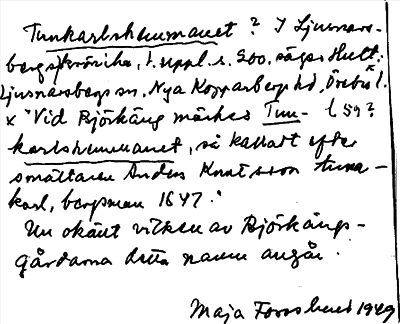 Tunkarlshemmanet? I Ljusnars-
bergskrönika, 1. uppl. s. 500, säges Hult:
Ljusnarsbergs sn, Nya Kopparbergs hd, Örebro l.
x "Vid Björkäng märkes Tun- l 59?
karlshemmanet, så kallat efter
smältaren Anders Knutsson tuna-
karl, bergsman 1647."
Nu okänt vilken av Björkängs-
gårdarna detta namn angår.
Maja 1949